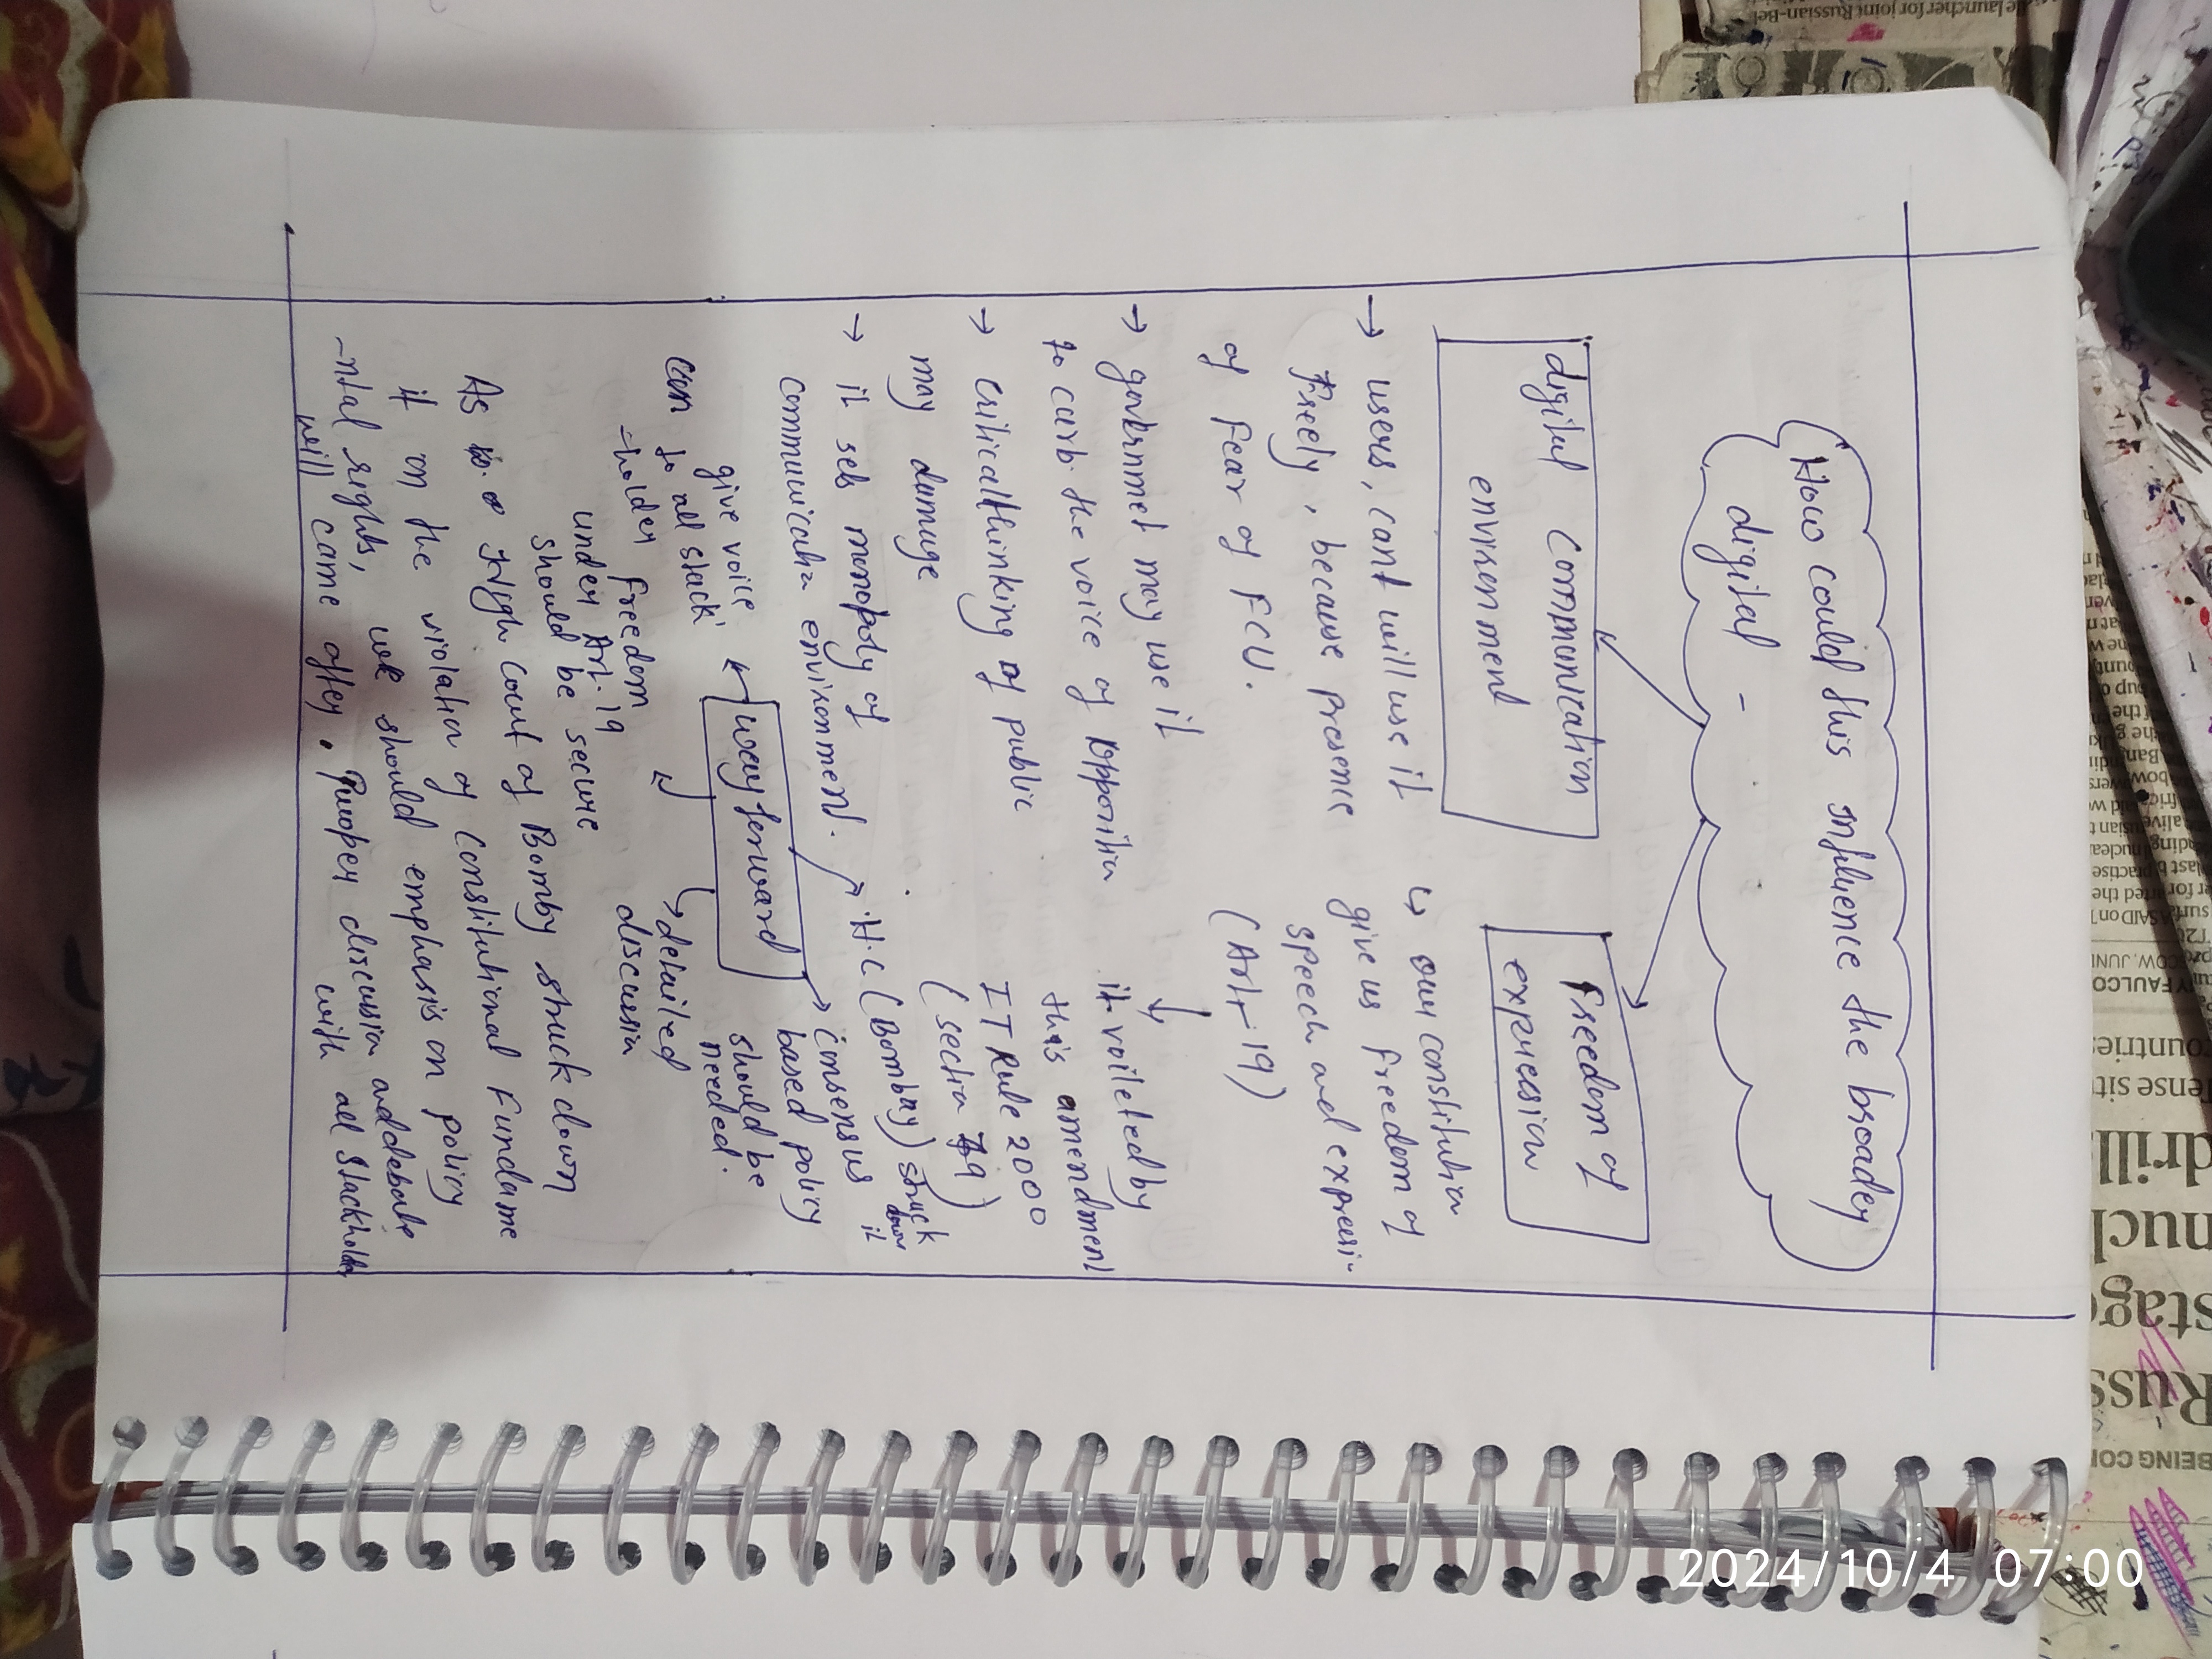 How could this influence the broader
digital -
digital communication
environment
Freedom of
expression
→ users, cant will use it
freely, because presence
of fear of FCU.
→ governmet may use it
to curb the voice of opposition
→ critical thinking of public
may damage
→ it sets monopoly of
communicatn environment.
↳ our constitution
give us freedom of
speech and expressi-
(Art-19)
↓
it voileted by
this amendment
IT Rule 2000
(section 79)
H.C (Bombay) struck
down it
way forward
consensus
based policy
should be
needed.
detailed
discussion
give voice
to all stack
-holder
can
freedom
under Art. 19
should be secure
As High Court of Bomby struck down
it on the violation of constitutional Fundame
-ntal rights, we should emphasis on policy
will came after. Proper discussion and debate
with all stackholder
2024/10/4 07:00
drill
nucl
stage
Russ
BEING CO
ountries
ense sit
Y FAULCO
le launcher for joint Russian-Bel